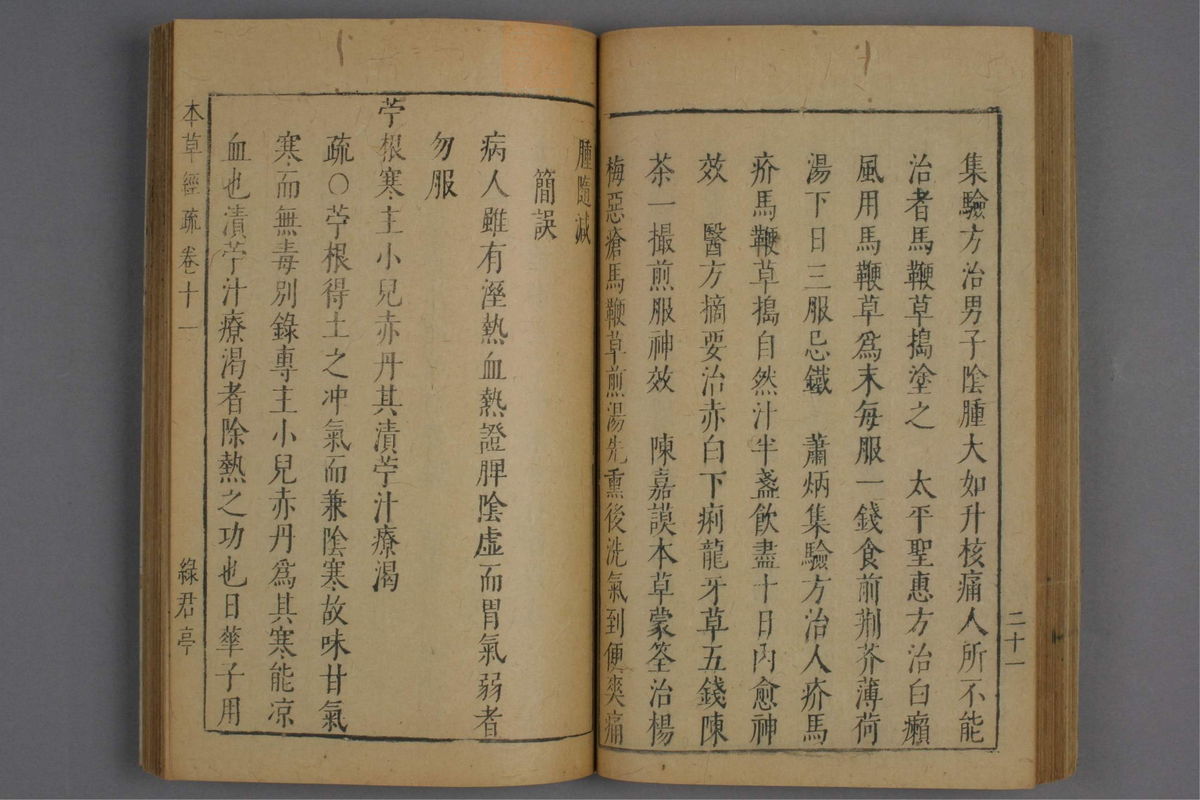 集驗方治男子陰腫大如升核痛人所不能
治者馬鞭草搗塗之　太平聖惠方治白癩
風用馬鞭草爲末每服一錢食前荆芥薄荷
湯下日三服忌鐵　蕭炳集驗方治人疥馬
疥馬鞭草搗自然汁半盞飲盡十日內愈神
效　醫方摘要治赤白下痢龍牙草五錢陳
茶一撮煎服神效　陳嘉謨本草蒙筌治楊
梅惡瘡馬鞭草煎湯先熏後洗氣到便爽痛
二十一
腫隨減
簡誤
病人雖有溼熱血熱證脾陰虛而胃氣弱者
勿服
苧根寒主小兒赤丹其漬苧汁療渴
疏○苧根得土之冲氣而兼陰寒故味甘氣
寒而無毒別錄專主小兒赤丹爲其寒能凉
血也漬苧汁療渴者除熱之功也日華子用
本草經疏卷十一
綠君亭